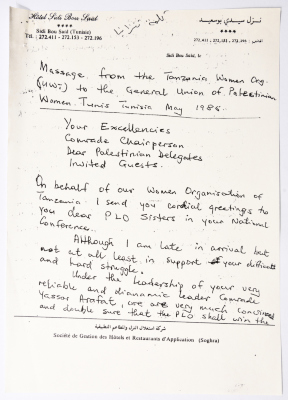 Hotel Sidi Bou Said
نزل سيدي بو سعيد
****
****
Sidi Bou Said (Tunisie)
سيدي بو سعيد
Tél : 272.411 - 272.153 - 272.196
272.411 - 272.153 - 272.196
Sidi Bou Saïd, le
Massage from the Tanzania Women Org.
(UWT) to the General Union of Palestinian
Women - Tunis Tunisia May 1985.
Your Excellencies
Comrade Chairperson
Dear Palestinian Delegates
Invited Guests.
On behalf of our Women Organisation of
Tanzania. I send you cordial greetings to
you dear PLO Sisters in your National
Conference.
Although I am late in arrival but
not at all least in support of your difficult
and hard struggle.
Under the Leadership of your very
reliable and dianamic leader Comrade
Yassar Ararat, we are very much convinced
and double sure that the PLO shall win the
شركة استغلال النزل والمطاعم التطبيقية
Société de Gestion des Hôtels et Restaurants d'Application (Soghra)